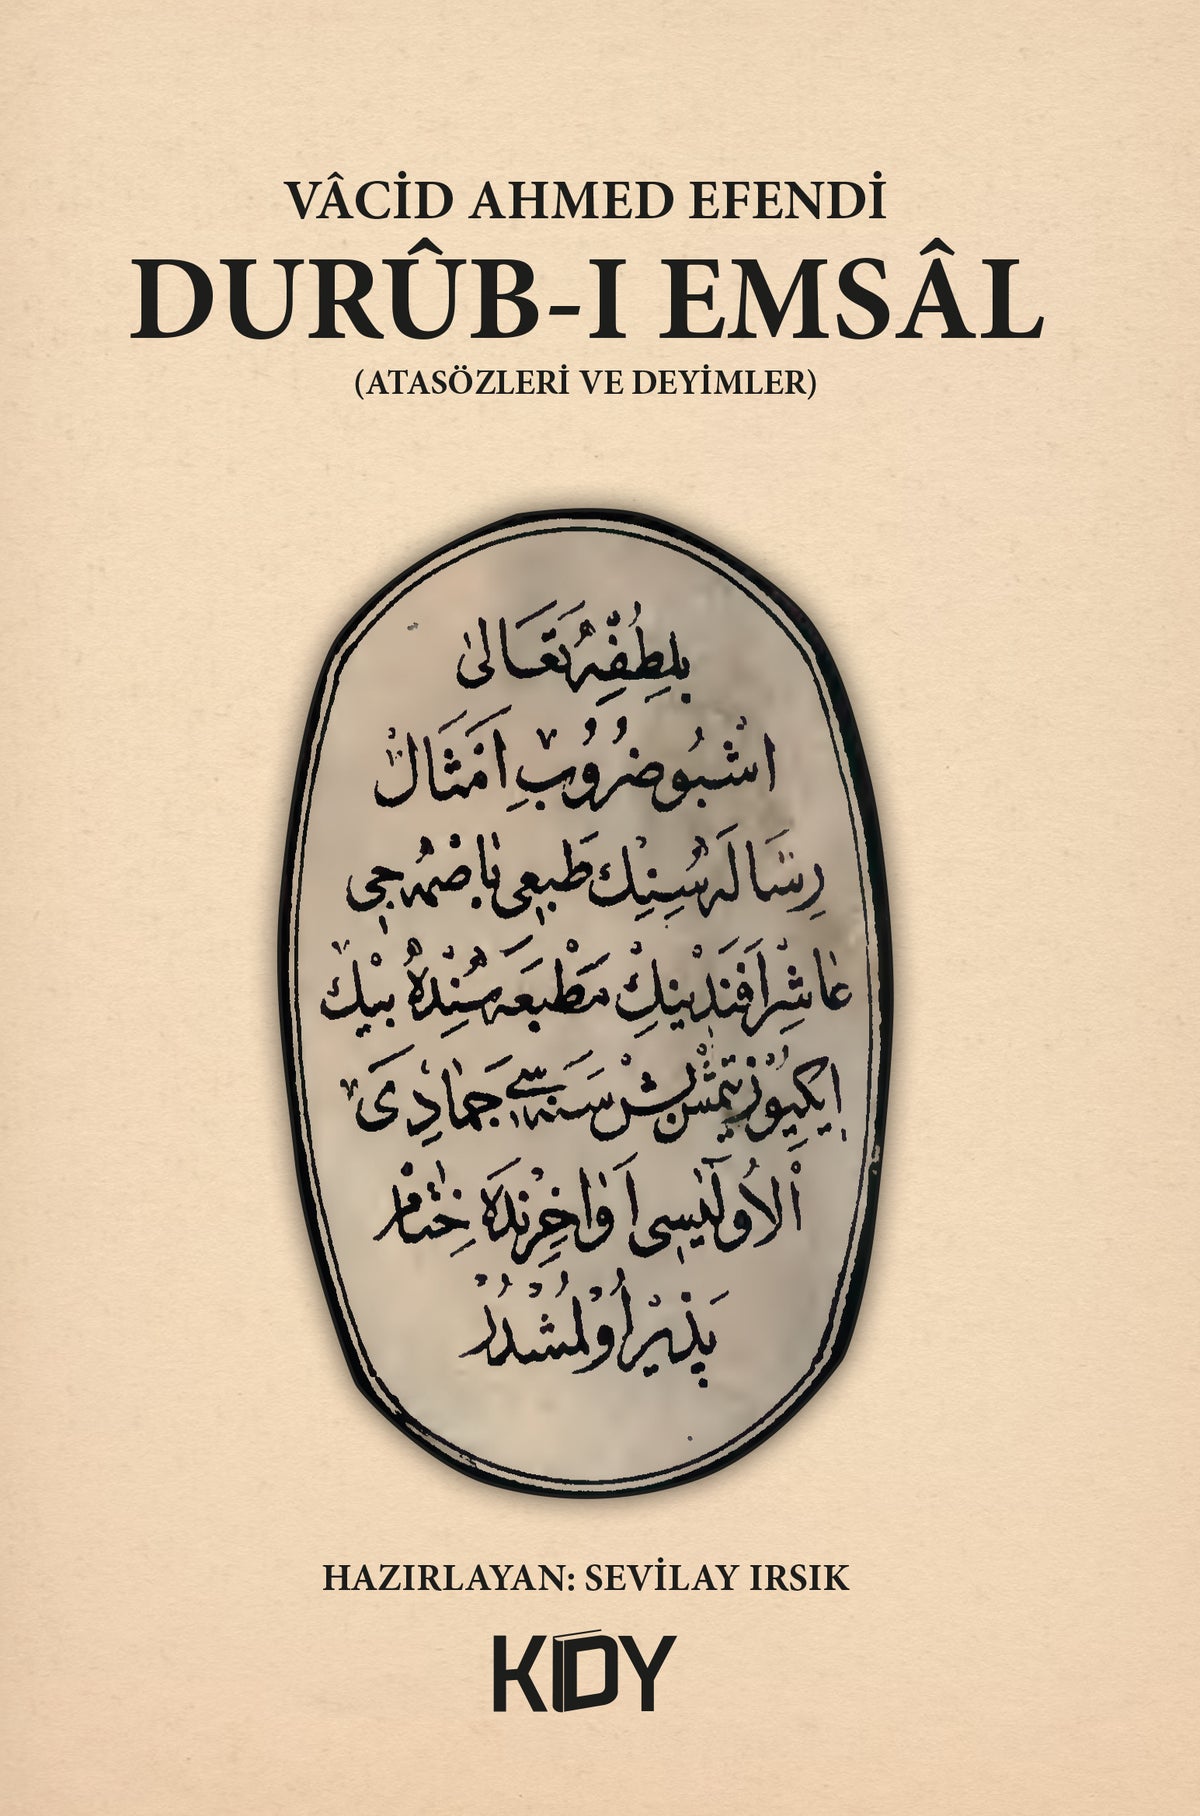 VÂCİD AHMED EFENDİ
DURÛB-I EMSÂL
(ATASÖZLERİ VE DEYİMLER)
بِلُطْفِهِ تَعَالىٰ
اشبو ضُرُوبِ اَمْثَالْ
رِسَالَه سِنِڭ طبعی باصمه جی
عاشِر اَفَنْدِینِكْ مَطْبَعَه سِنْدَهْ بیڭ
اِیکیوز یتمش بش سَنَه سی جمَاذِیَ
اْلاُولٰیسِی اَوَاخِرِنْدَه خِتَامْ
پَذِیرْ اُوْلمُشْدُرْ
HAZIRLAYAN: SEVİLAY IRSIK
KDY